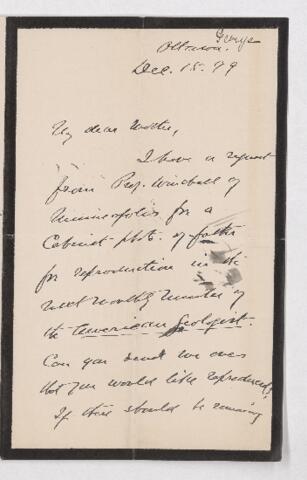 George
Ottawa.
Dec. 15. 99
My dear Mother,
I have a request
from Prof. Winchell of
Minneapolis for a
Cabinet photo. of father
for reproduction in the
next monthly number of
the American Geologist.
Can you send me ones
that you would like reproduced?
If there should be remaining